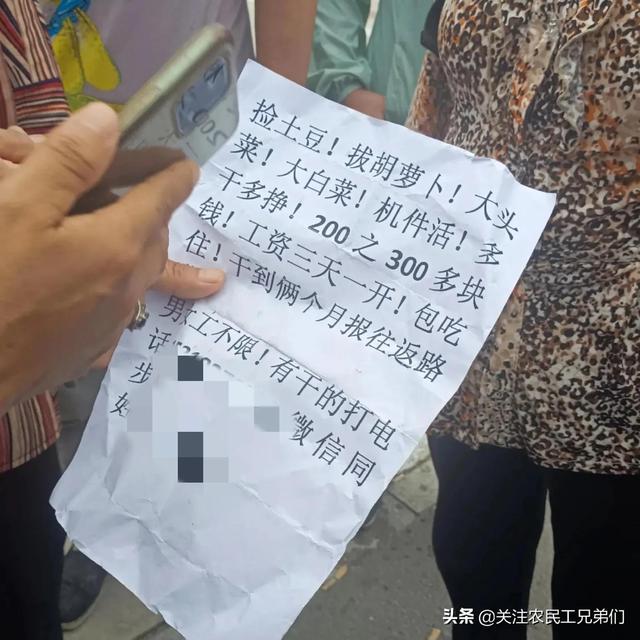 捡土豆！拔胡萝卜！大头
菜！大白菜！机件活！多
干多挣！200之300多块
钱！工资三天一开！包吃
住！干到俩个月报往返路
男女工不限！有干的打电
话 微信同
步
好
头条 @关注农民工兄弟们